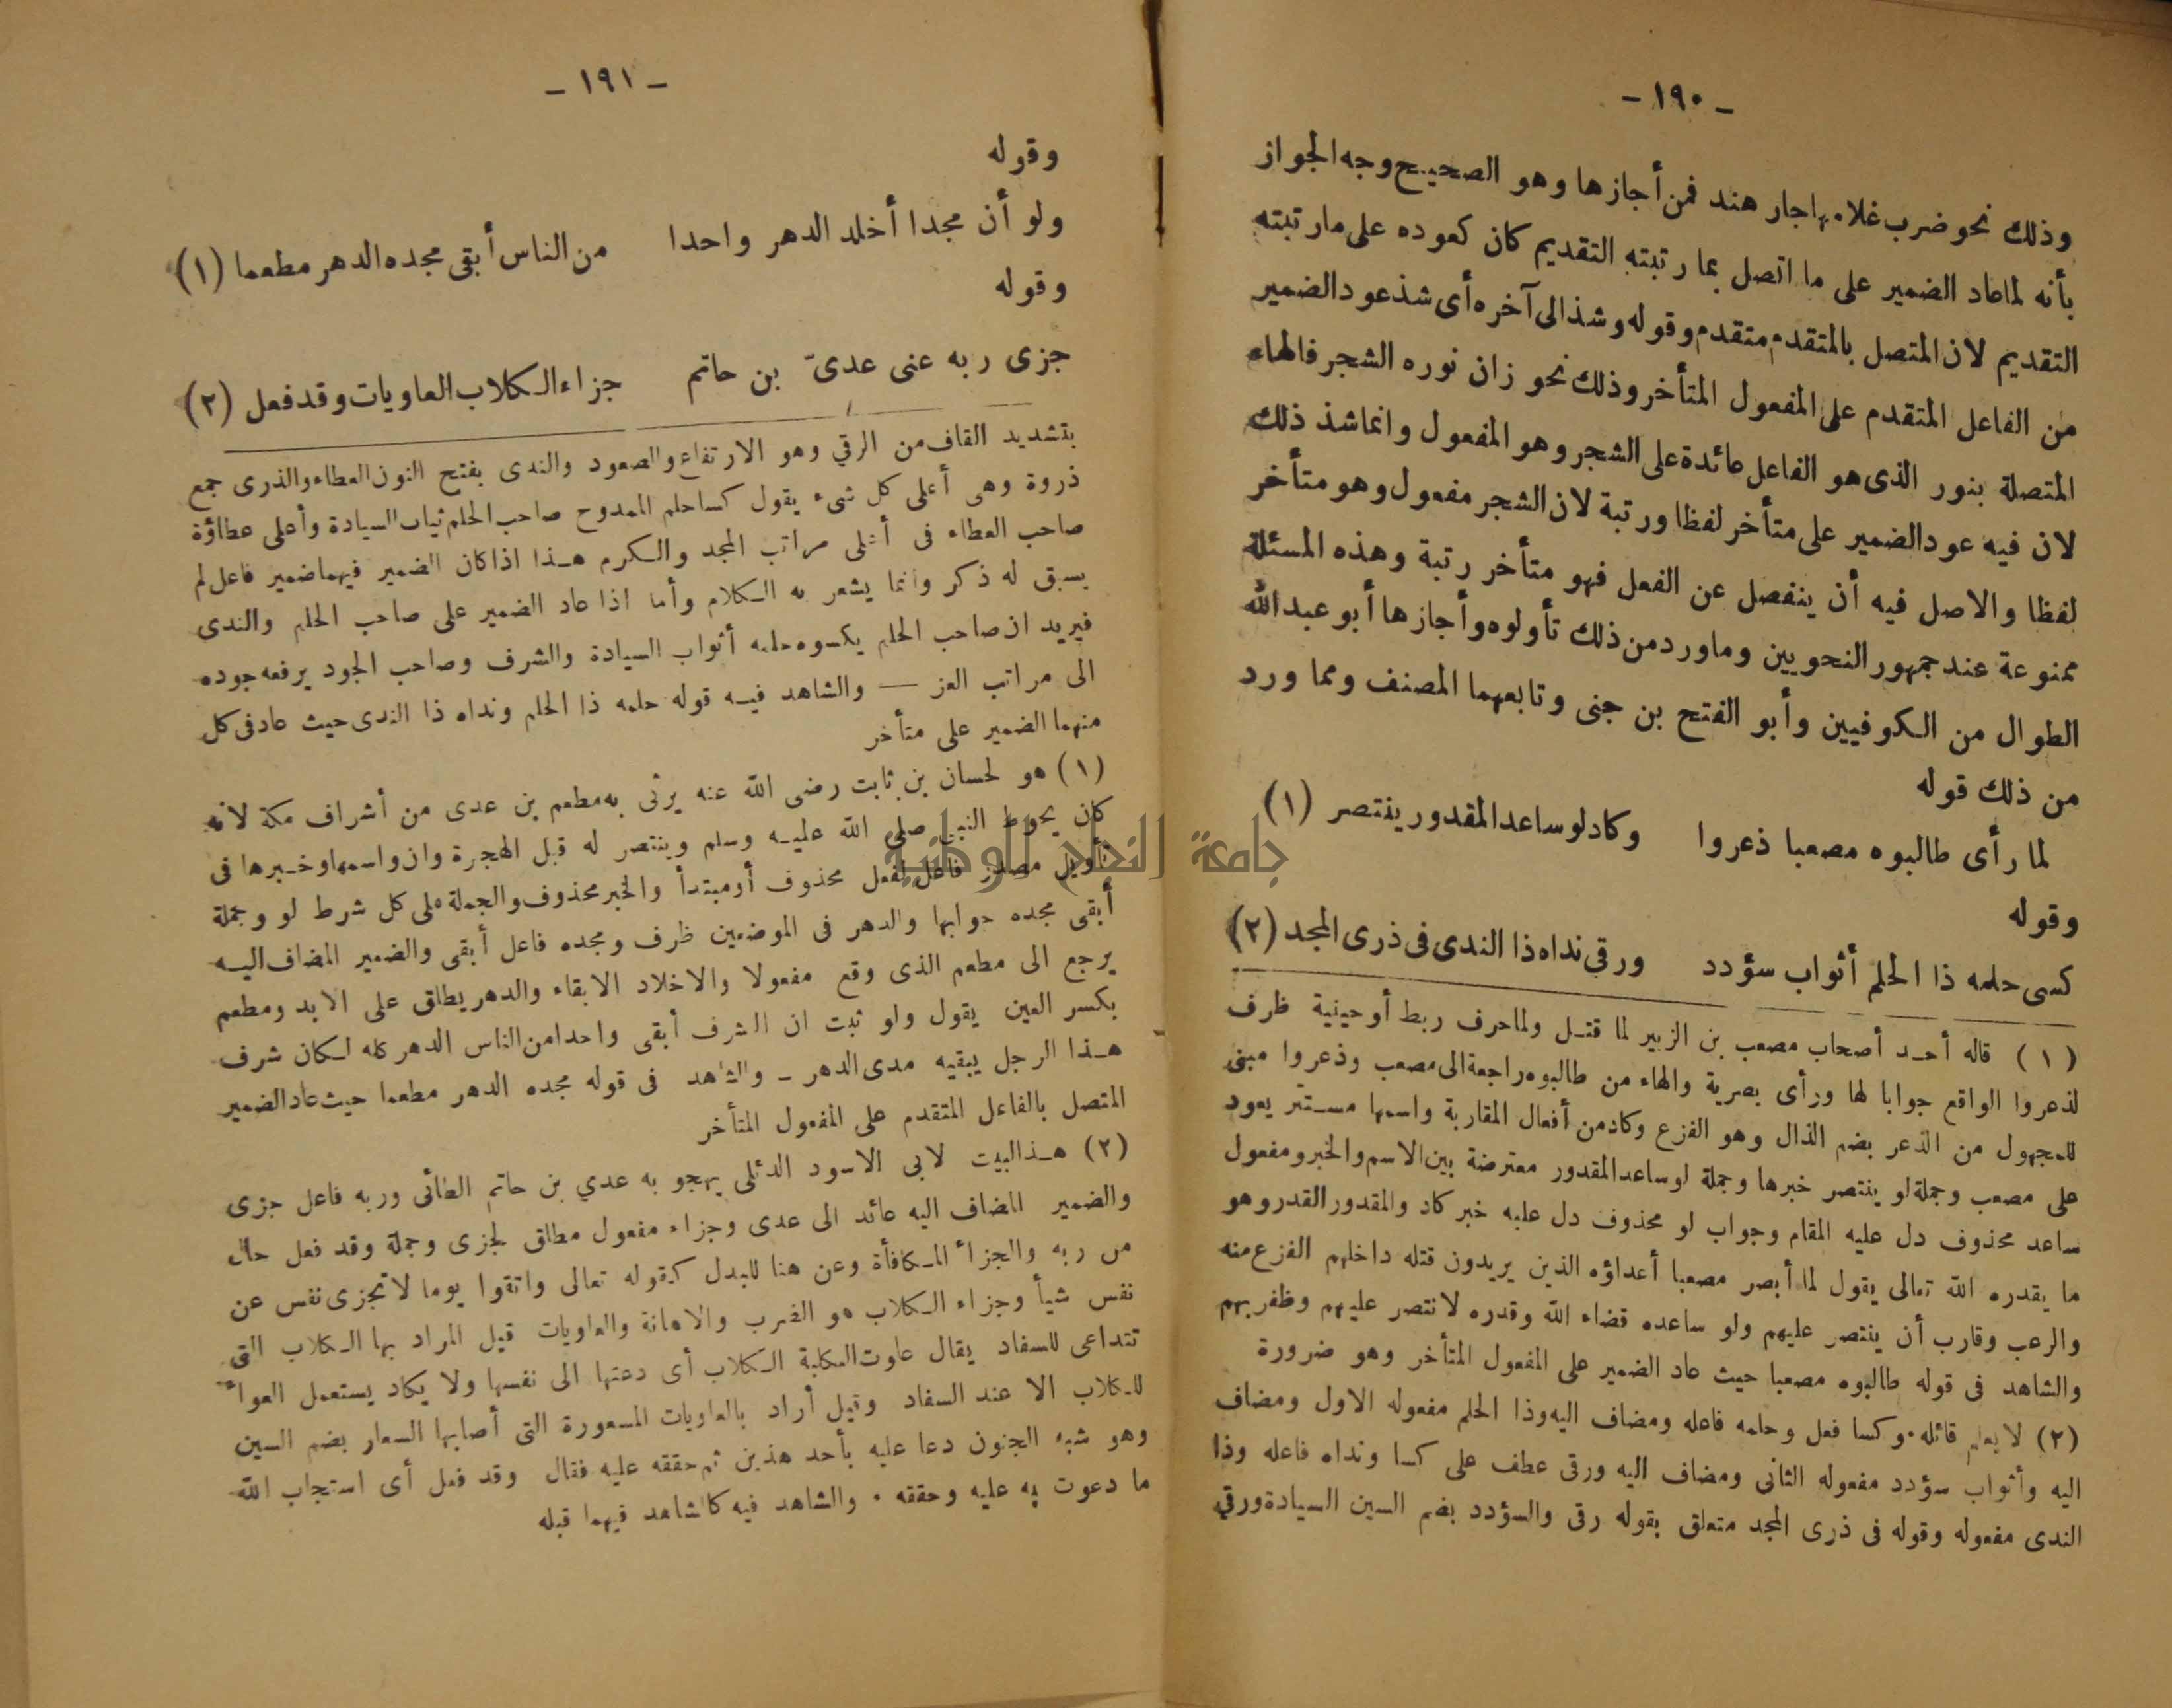 ـ ١٩٠ ـ
وذلك نحو ضرب غلامها جار هند فمن أجازها وهو الصحيح وجه الجواز
بأنه لما عاد الضمير على ما اتصل بما رتبته التقديم كان كعوده على ما رتبته
التقديم لان المتصل بالمتقدم متقدم وقوله وشذ الى آخره أى شذ عود الضمير
من الفاعل المتقدم على المفعول المتأخر وذلك نحو زان نوره الشجر فالهاء
المتصلة بنور الذى هو الفاعل عائدة على الشجر وهو المفعول وانما شذ ذلك
لان فيه عود الضمير على متأخر لفظا ورتبة لان الشجر مفعول وهو متأخر
لفظا والاصل فيه أن ينفصل عن الفعل فهو متأخر رتبة وهذه المسئلة
ممنوعة عند جمهور النحويين وما ورد من ذلك تأولوه وأجازها أبو عبد الله
الطوال من الكوفيين وأبو الفتح بن جنى وتابعهما المصنف ومما ورد
من ذلك قوله
لما رأى طالبوه مصعبا ذعروا وكاد لو ساعد المقدور ينتصر (١)
وقوله
كسى حلمه ذا الحلم أثواب سؤدد ورقى نداه ذا الندى فى ذرى المجد (٢)
(١) قاله أحد أصحاب مصعب بن الزبير لما قتل ولما حرف ربط أو حينية ظرف
لذعروا الواقع جوابا لها ورأى بصرية والهاء من طالبوه راجعة الى مصعب وذعروا مبنى
للمجهول من الذعر بضم الذال وهو الفزع وكاد من أفعال المقاربة واسمها مستتر يعود
على مصعب وجملة لو ينتصر خبرها وجملة لو ساعد المقدور معترضة بين الاسم والخبر ومفعول
ساعد محذوف دل عليه المقام وجواب لو محذوف دل عليه خبر كاد والمقدور القدر وهو
ما يقدره الله تعالى يقول لما أبصر مصعبا أعداؤه الذين يريدون قتله داخلهم الفزع منه
والرعب وقارب أن ينتصر عليهم ولو ساعده قضاء الله وقدره لانتصر عليهم وظفر بهم
والشاهد فى قوله طالبوه مصعبا حيث عاد الضمير على المفعول المتأخر وهو ضرورة
(٢) لا يعلم قائله. وكسا فعل وحلمه فاعله ومضاف اليه وذا الحلم مفعوله الاول ومضاف
اليه وأثواب سؤدد مفعوله الثانى ومضاف اليه ورقى عطف على كسا ونداه فاعله وذا
الندى مفعوله وقوله فى ذرى المجد متعلق بقوله رقى والسؤدد بضم السين السيادة ورقي
ـ ١٩١ ـ
وقوله
ولو أن مجدا أخلد الدهر واحدا من الناس أبقى مجده الدهر مطعما (١)
وقوله
جزى ربه عنى عدىّ بن حاتم جزاء الكلاب العاويات وقد فعل (٢)
بتشديد القاف من الرقي وهو الارتفاع والصعود والندى بفتح النون العطاء والذرى جمع
ذروة وهى أعلى كل شىء يقول كسا حلم الممدوح صاحب الحلم ثياب السيادة وأعلى عطاؤه
صاحب العطاء فى أعلى مراتب المجد والكرم هذا اذا كان الضمير فيهما ضمير فاعل لم
يسبق له ذكر وانما يشعر به الكلام وأما اذا عاد الضمير على صاحب الحلم والندى
فيريد ان صاحب الحلم يكسوه حلمه أثواب السيادة والشرف وصاحب الجود يرفعه جوده
الى مراتب العز — والشاهد فيه قوله حلمه ذا الحلم ونداه ذا الندى حيث عاد فى كل
منهما الضمير على متأخر
(١) هو لحسان بن ثابت رضى الله عنه يرثى به مطعم بن عدى من أشراف مكة لانه
كان يحوط النبي صلى الله عليه وسلم وينتصر له قبل الهجرة وان واسمها وخبرها فى
تأويل مصدر فاعل لفعل محذوف أو مبتدأ والخبر محذوف والجملة على كل شرط لو وجملة
أبقى مجده جوابها والدهر فى الموضعين ظرف ومجده فاعل أبقى والضمير المضاف اليه
يرجع الى مطعم الذى وقع مفعولا والاخلاد الابقاء والدهر يطلق على الابد ومطعم
بكسر العين يقول ولو ثبت ان الشرف أبقى واحدا من الناس الدهر كله لكان شرف
هذا الرجل يبقيه مدى الدهر ـ والشاهد فى قوله مجده الدهر مطعما حيث عاد الضمير
المتصل بالفاعل المتقدم على المفعول المتأخر
(٢) هذا البيت لابى الاسود الدئلى يهجو به عدي بن حاتم الطائى وربه فاعل جزى
والضمير المضاف اليه عائد الى عدى وجزاء مفعول مطلق لجزى وجملة وقد فعل حال
من ربه والجزاء المكافأة وعن هنا للبدل كقوله تعالى واتقوا يوما لا تجزى نفس عن
نفس شيأ وجزاء الكلاب هو الضرب والاهانة والعاويات قيل المراد بها الكلاب التى
تتداعى للسفاد يقال عاوت الكلبة الكلاب أى دعتها الى نفسها ولا يكاد يستعمل العواء
للكلاب الا عند السفاد وقيل أراد بالعاويات المسعورة التى أصابها السعار بضم السين
وهو شبه الجنون دعا عليه بأحد هذين ثم حققه عليه فقال وقد فعل أى استجاب الله
ما دعوت به عليه وحققه . والشاهد فيه كالشاهد فيما قبله
جامعة النجاح الوطنية